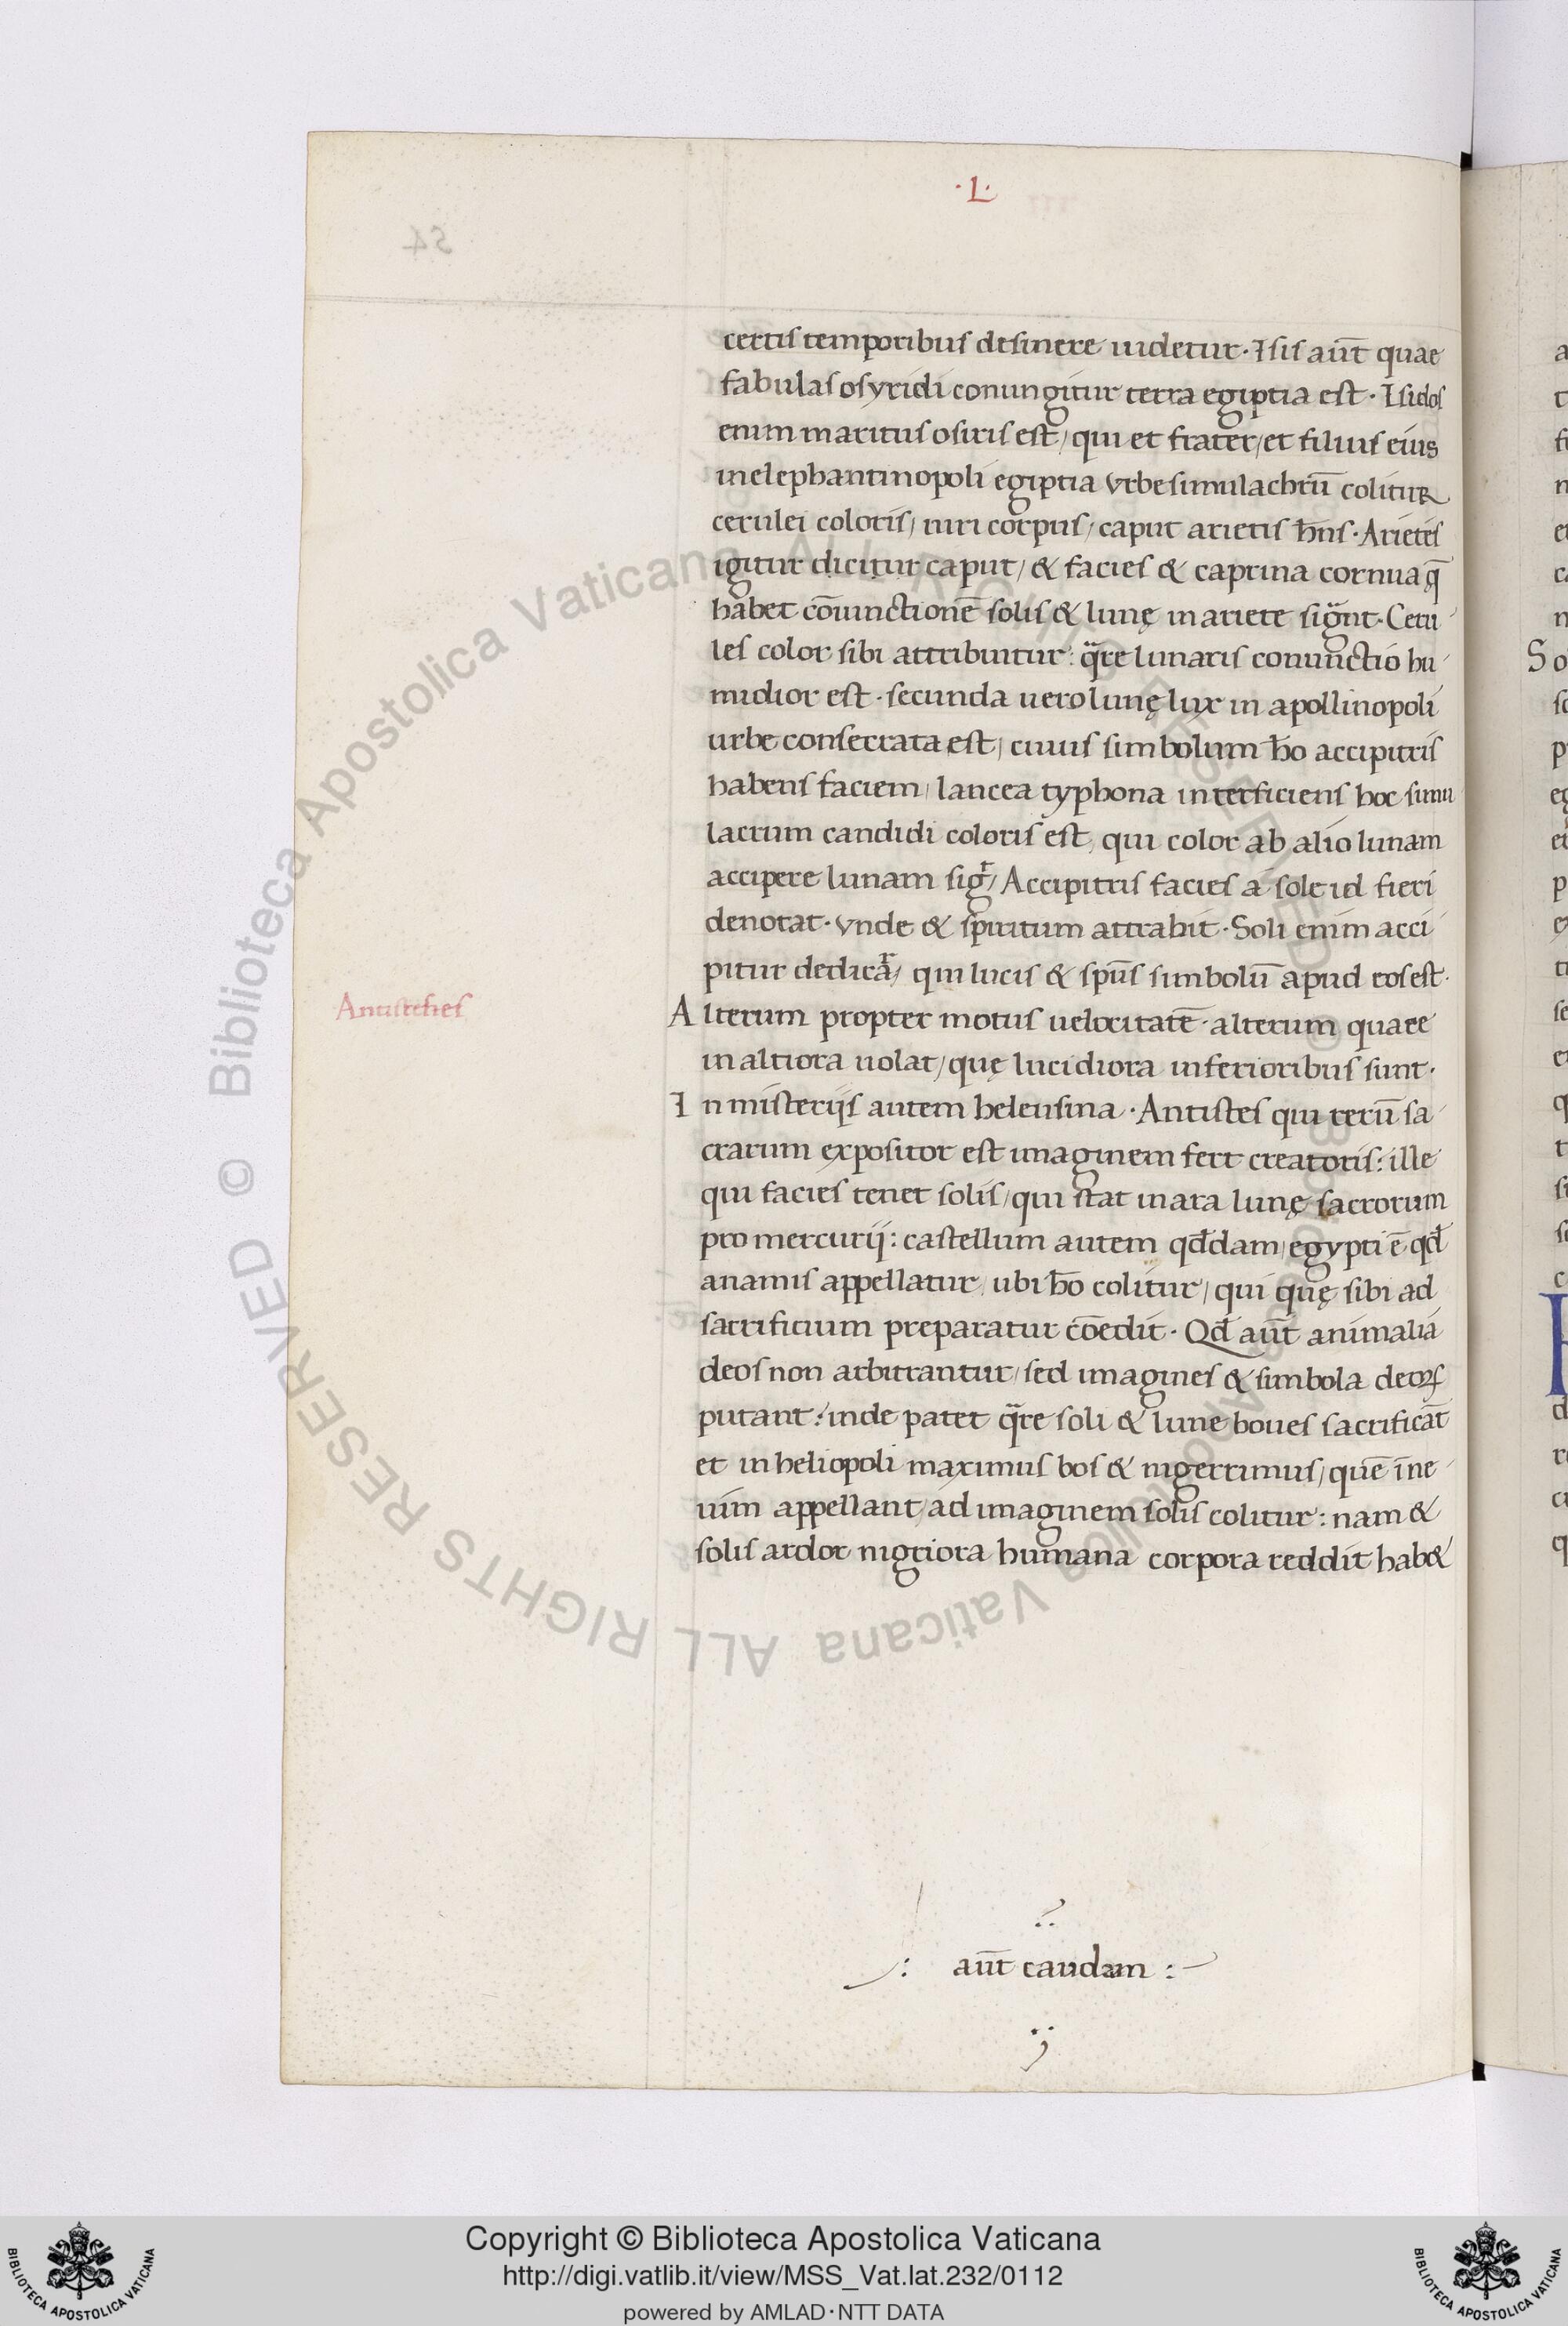 ·L·
54
certis temporibus desinere uidetur · Isis aut̄ quae
fabulas osyridi coniungitur terra egiptia est · Isidos
enim maritus osiris est / qui et frater / et filius eius
in elephantinopoli egiptia vrbe simulachrū colitur
cerulei coloris / uiri corpus / caput arietis hn̄s · Arietis
igitur dicitur caput / & facies & caprina cornua q̄
habet cōiunctionē solis & lunę in ariete sig̃nt · Ceru
les color sibi attribuitur : q̈re lunaris coniunctio hu
midior est · secunda uero lunę lux in apollinopoli
urbe consecrata est / cuius simbolum ho̅ accipitris
habens faciem / lancea typhona interficiens hoc simu
lacrum candidi coloris est / qui color ab alio lunam
accipere lunam sigr̃ / Accipitris facies a sole id fieri
denotat · vnde & spiritum attrahit · Soli enim acci
pitur dedicar̃ / qui lucis & spūs simbolū apud eos est ·
Antistehes
Alterum propter motus uelocitatē · alterum quare
in altiora uolat / quę lucidiora inferioribus sunt ·
In misterijs autem heleusina · Antistes qui rerū sa
crarum expositor est imaginem fert creatoris : ille
qui facies tenet solis / qui stat in ara lunę sacrorum
pro mercurij : castellum autem qd̄dam / egypti ē qd̄
anamis appellatur / ubi ho̅ colitur / qui quę sibi ad
sacrificium preparatur cōedit · Qd̄ aut̄ animalia
deos non arbitrantur / sed imagines & simbola deoꝝ
putant : inde patet q̈re soli & lune boues sacrificāt
et in heliopoli maximus bos & nigerrimus / quē īne
uim appellant / ad imaginem solis colitur : nam &
solis ardor nigriora humana corpora reddit hab&
aut̄ caudam :
© Biblioteca Apostolica Vaticana ALL RIGHTS RESERVED © Biblioteca Apostolica Vaticana ALL RIGHTS RESERVED
Copyright © Biblioteca Apostolica Vaticana
http://digi.vatlib.it/view/MSS_Vat.lat.232/0112
powered by AMLAD·NTT DATA
BIBLIOTECA APOSTOLICA VATICANA
BIBLIOTECA APOSTOLICA VATICANA